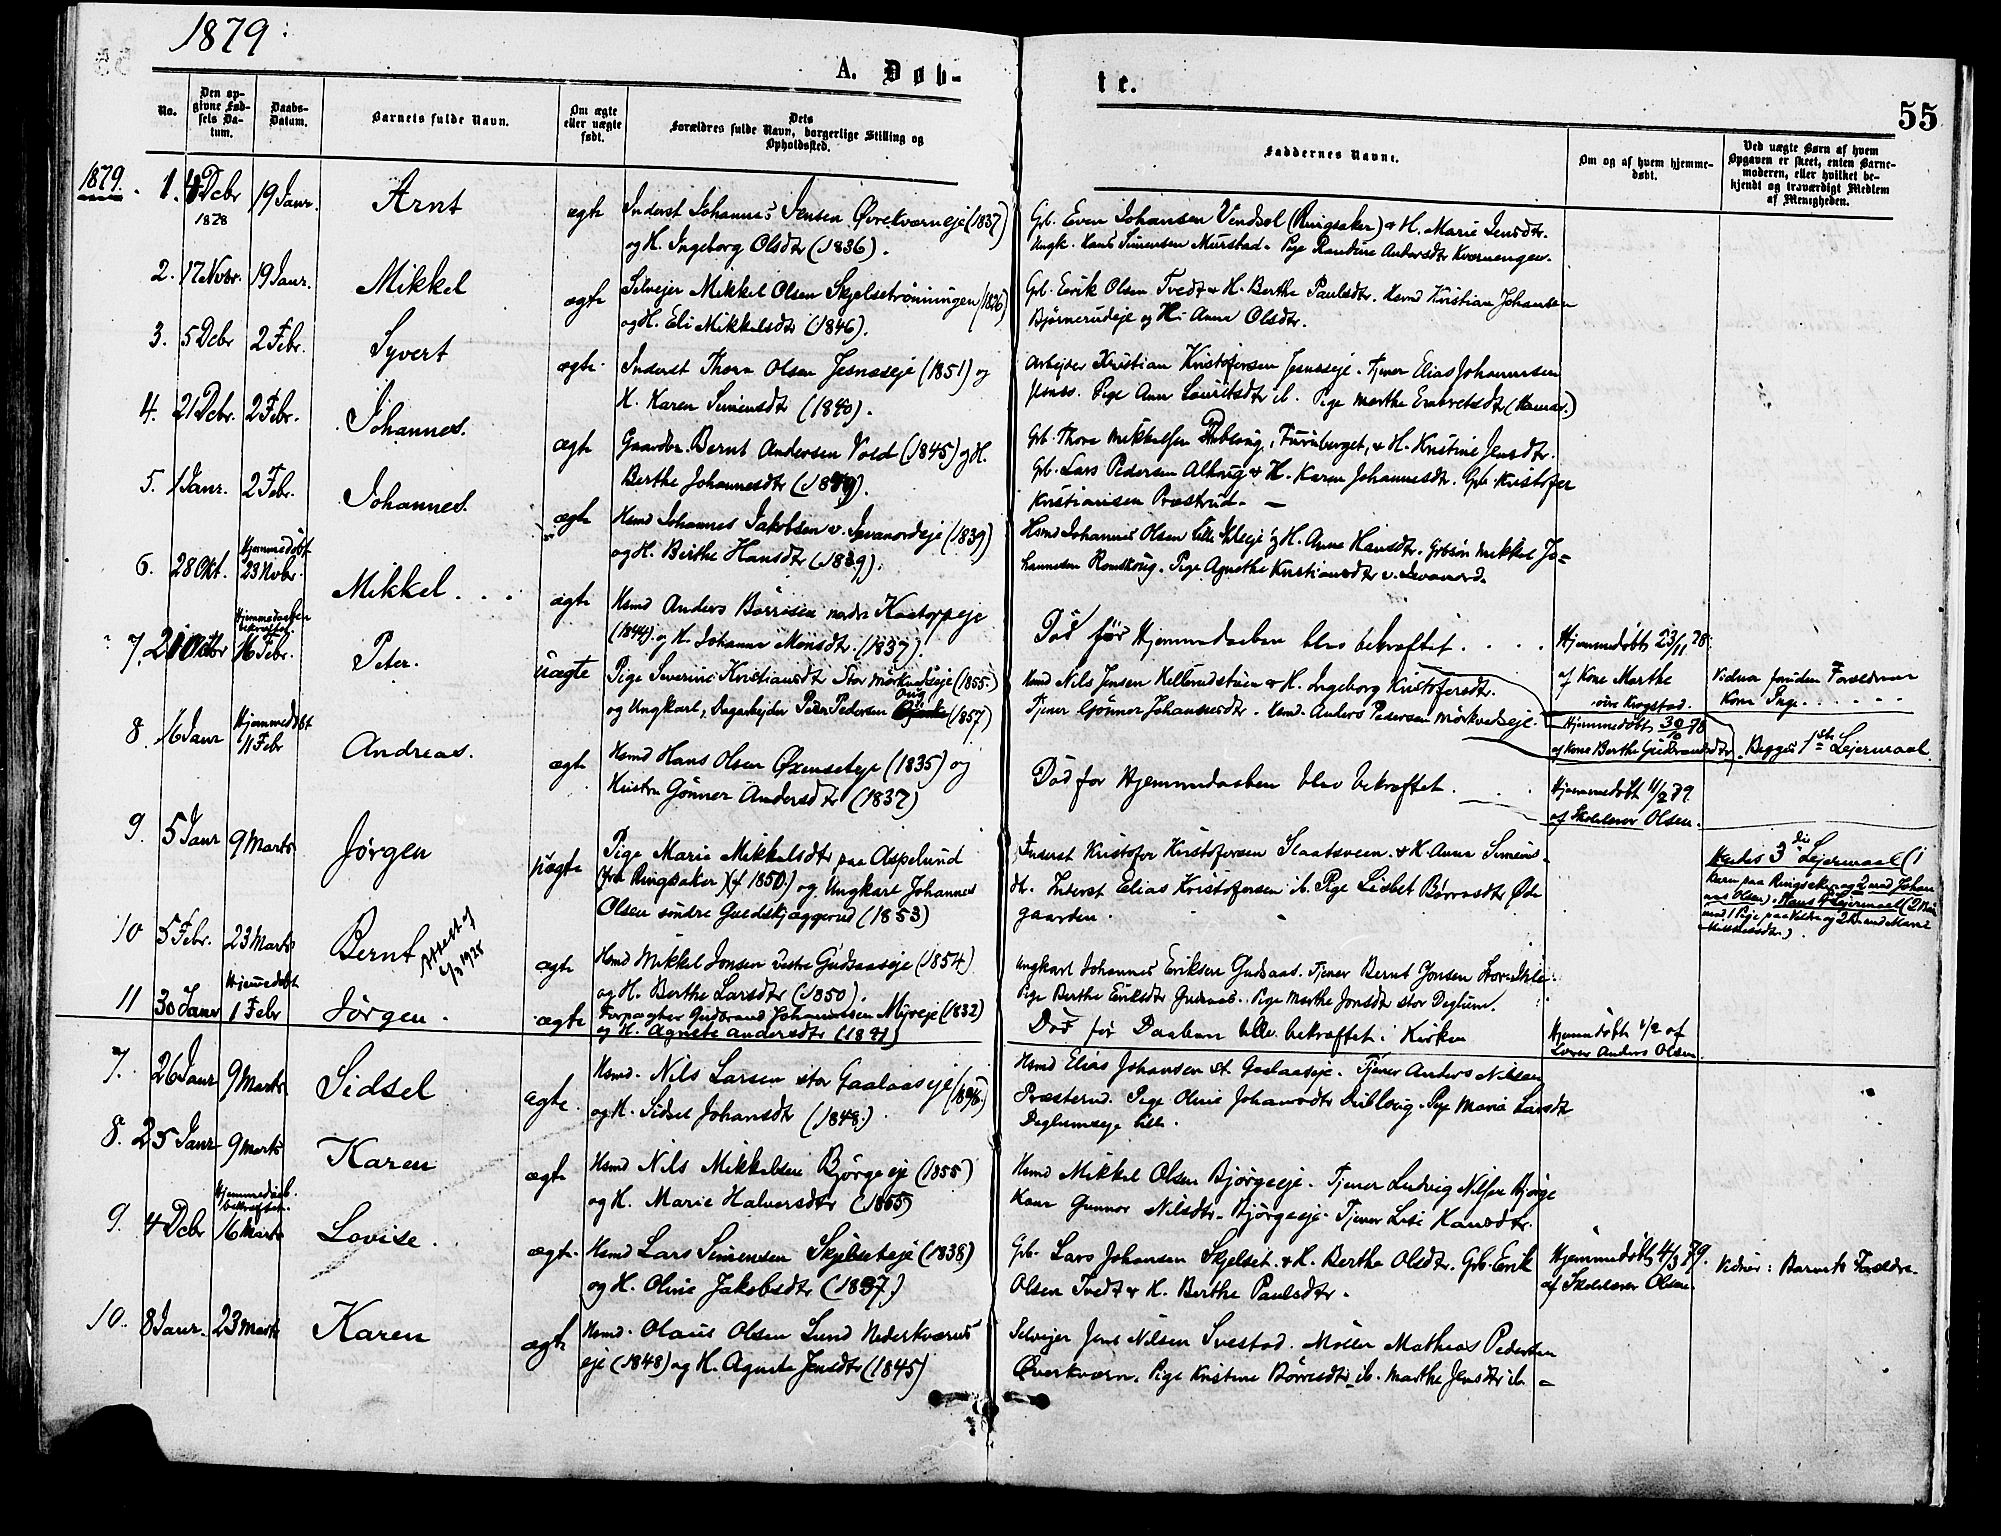 1879:
A. Døb-
te.
55
No.
Den opgivne Fødsels Datum.
Daabs-Datum.
Barnets fulde Navn.
Om ægte eller uægte født.
Dets Forældres fulde Navn, borgerlige Stilling og Opholdssted.
Faddernes Navne.
Om og af hvem hjemmedøbt.
Ved uægte Børn af hvem Opgaven er skeet, enten Barnemoderen, eller hvilket bekjendt og troværdigt Medlem af Menigheden.
1879.
1. 4 Debr 1828 19 Janr. Arnt ægte
Inderst Johannes Jensen Øvrekværneje (1837)
og H. Ingeborg Olsdtr (1836).
Gb. Even Johansen Vendsol (Ringsaker) & H. Marie Jensdtr.
Ungk. Hans Simensen Murstad. Pige Randine Andersdtr Kværnengen.
2. 17 Novbr. 19 Janr. Mikkel ægte
Selvejer Mikkel Olsen Skjelsetrønningen (1826)
og H. Eli Mikkelsdtr (1846).
Gb. Erik Olsen Tvedt & H. Berthe Paulsdtr. Hsmd Kristian Johansen
Bjørnerudeje og H. Anne Olsdtr.
3. 5 Debr 2 Febr. Syvert ægte
Inderst Thore Olsen Jesneseje (1851) og
H. Karen Simensdtr (1840).
Arbejder Kristian Kristofersen Jesneseje. Tjener Elias Johannesen
Jesnes. Pige Ann Lauritsdtr ib. Pige Marthe Embretsdtr (Hamar.)
4. 21 Debr. 2 Febr. Johannes. ægte
Gaardbr. Bernt Andersen Vold (1845) og H.
Berthe Johannesdtr (1849).
Gb. Thore Mikkelsen Dæblong, Furuberget, & H. Kristine Jensdtr.
Gb. Lars Pedersen Alhaug & H. Karen Johannesdtr. Gb. Kristofer
Kristiansen Præstrud. —
5. 1 Janr. 2 Febr. Johannes. ægte
Hsmd Johannes Jakobsen v. Svenordseje (1839)
og H. Berthe Hansdtr (1839).
Hsmd Johannes Olsen Lille Ihleeje og H. Anne Hansdtr. Gbsøn Mikkel Jo-
hannesen Romskoug. Pige Agnethe Kristiansdtr v. Svenord.
6. 28 Okt. Hjemmedøbt 23 Novbr. Mikkel . . . ægte
Hsmd Anders Børresen nedre Kaatoppeje
(1844) og H. Johanne Monsdtr. (1837).
Død før Hjemmedaaben blev bekræftet. . . .
Hjemmedøbt 23/11 78.
7. 21 Oktbr Hjemmedaaben bekræftet. 16 Febr. Peter. uægte
Pige Severine Kristiansdtr Stor Mørkvedseje (1855.)
og Ungkarl, Dagarbejder Peter Pedersen (1857)
Hsmd Nils Jensen Kellerudstuen & H. Ingeborg Kristofersdtr.
Tjener Gønner Johannesdtr. Hsmd. Anders Pedersen Mørkvedseje.
af Kone Marthe
øvre Krogstad.
Hjemmedøbt 30/10 78
af Kone Berthe Gudbrandsdtr
Vidner foruden Forældrene
Kone Inge . . . . .
Begges 1ste Lejermaal.
8. 16 Janr Hjemmedøbt 11 Febr Andreas. ægte
Hsmd Hans Olsen Øxenseteje (1835) og
Hustru Gønner Andersdtr (1837)
Død før Hjemmedaaben blev bekræftet. . .
Hjemmedøbt 11/2 79.
af Skolelærer Olsen.
9. 5 Janr 9 Marts Jørgen uægte
Pige Marie Mikkelsdtr paa Aspelund
(fra Ringsaker) (f 1850.) og Ungkarl Johannes
Olsen søndre Gaedskjæggerud (1853)
Inderst Kristofer Kristofersen Slaatsveen & H. Anne Simens-
dtr. Inderst Elias Kristofersen ib. Pige Lisbet Børresdtr Øde
gaarden.
Hendes 3die Lejermaal (1
Barn paa Ringsaker og 2 med Johan-
nes Olsen). Hans 4 Lejermaal (2 Børn
med 1 Pige paa Vildre og 2 Br med Marie
Mikkelsdtr).
10 5 Febr. 23 Marts Bernt Attest af 1928 ægte
Hsmd Mikkel Jonsen vestre Gudsaaseje (1854)
og H. Berthe Larsdtr (1850).
Ungkarl Johannes Eriksen Gudsaas. Tjener Bernt Jonsen Store Ihle.
Pige Berthe Eriksdtr Gudsaas. Pige Marthe Jonsdtr stor Deglum.
11 30 Janr Hjemmedøbt 1 Febr Jørgen. ægte
Forpagter Gudbrand Johannessen Myreje (1832)
og H. Agnete Andersdtr (1841)
Død før Daaben blev bekræftet i Kirken
Hjemmedøbt 1/2 af
Lærer Anders Olsen
7. 26 Janr 9 Marts Sidsel ægte.
Hsmd. Nils Larsen stor Gaalaaseje (1846.)
og H. Sidsel Johansdtr (1848.)
Hsmd Elias Johansen st. Gaalaaseje. Tjener Anders Nilsen
Præsterud. Pige Oline Johansdtr Dæblong. Pige Maria Larsdtr
Deglumseje lille.
8. 25 Janr 9 Marts Karen ægte
Hsmd Nils Mikkelsen Bjørgeeje (1855)
og H. Marie Halversdtr (1855)
Hsmd Mikkel Olsen Bjørgeeje. Tjener Ludvig Nilsen Bjørge
Kone Gunnor Nilsdtr. Bjørgeeje. Tjener Lise Hansdtr.
9. 4 Debr Hjemmedaab. bekræftet. 16 Marts Lovise. ægte.
Hsmd Lars Simensen Skjelseteje (1838)
og H. Oline Jakobsdtr (1837.)
Gb. Lars Johansen Skjelset & H. Berthe Olsdtr. Gb. Erik
Olsen Tvedt & H. Berthe Paulsdtr.
Hjemmedøbt 4/3 79.
af Skolelærer Olsen.
Vidner: Barnets Forældre.
10. 8 Janr. 23 Marts Karen ægte
Hsmd. Olaus Olsen Lund Nederkværns
eje (1848) og H. Agnete Jensdtr (1845)
Selvejer Jens Nilsen Svestad. Møller Mathias Pedersen
Øverkværn. Pige Kristine Børresdtr ib. Marthe Jensdtr ib. –